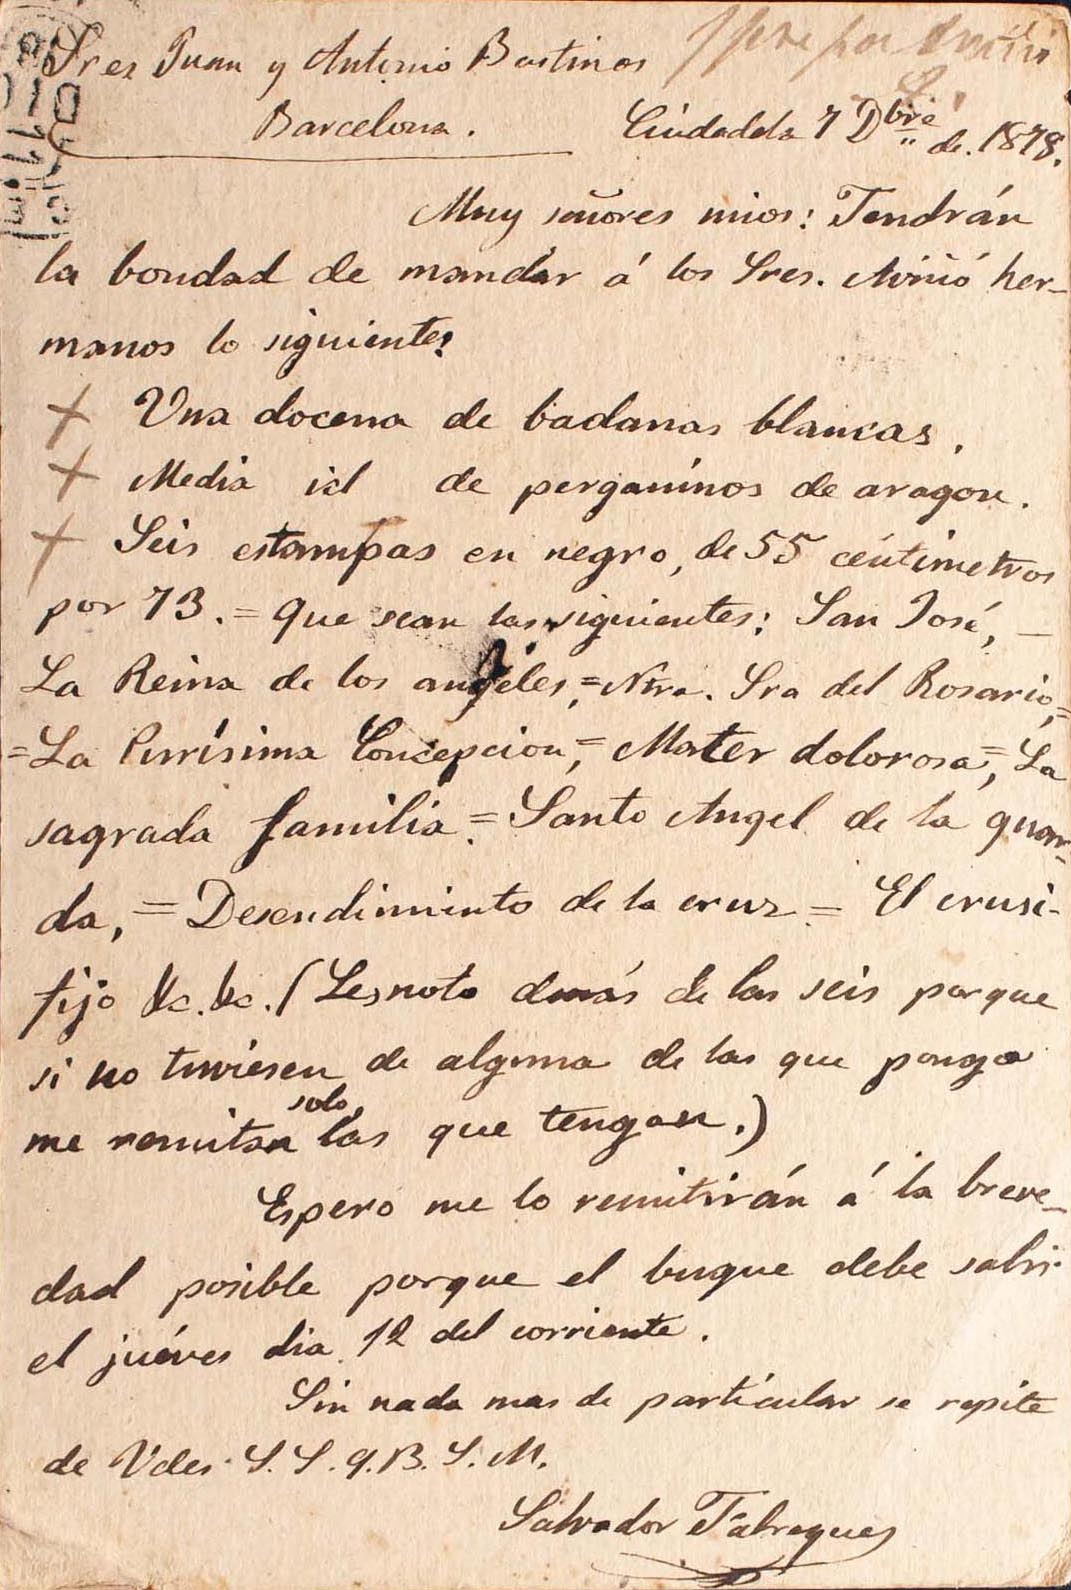 Sres Juan y Antonio Bastinos
Barcelona.
Ciudadela 7 Dbre de. 1878.
Muy señores mios: Tendrán
la bondad de mandar á los Sres. Aviñó her-
manos lo siguiente:
Una docena de badanas blancas.
Media id de pergaminos de aragon.
Seis estampas en negro, de 55 céntimetros
por 73. = que sean las siguientes: San José, —
La Reina de los angeles, = Ntra. Sra del Rosario, =
= La Purísima Concepcion, = Mater dolorosa, = La
sagrada familia. = Santo Angel de la guar-
da, = Desendimiento de la cruz = El crusi-
fijo &c. &c. (Les noto demás de las seis porque
si no tuviesen de alguna de las que pongo
me remitan solo las que tengan.)
Espero me lo remitirán á la breve-
dad posible porque el buque debe salir
el juéves dia 12 del corriente.
Sin nada mas de particular se repite
de Vdes. S. S. q. B. S. M.
Salvador Fábregues